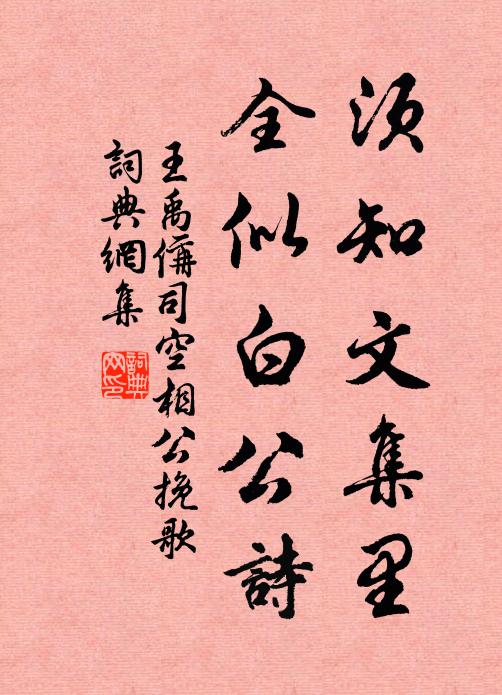 须知文集里
全似白公詩
王禹偁司空相公挽歌
詞典網集
詞典網印